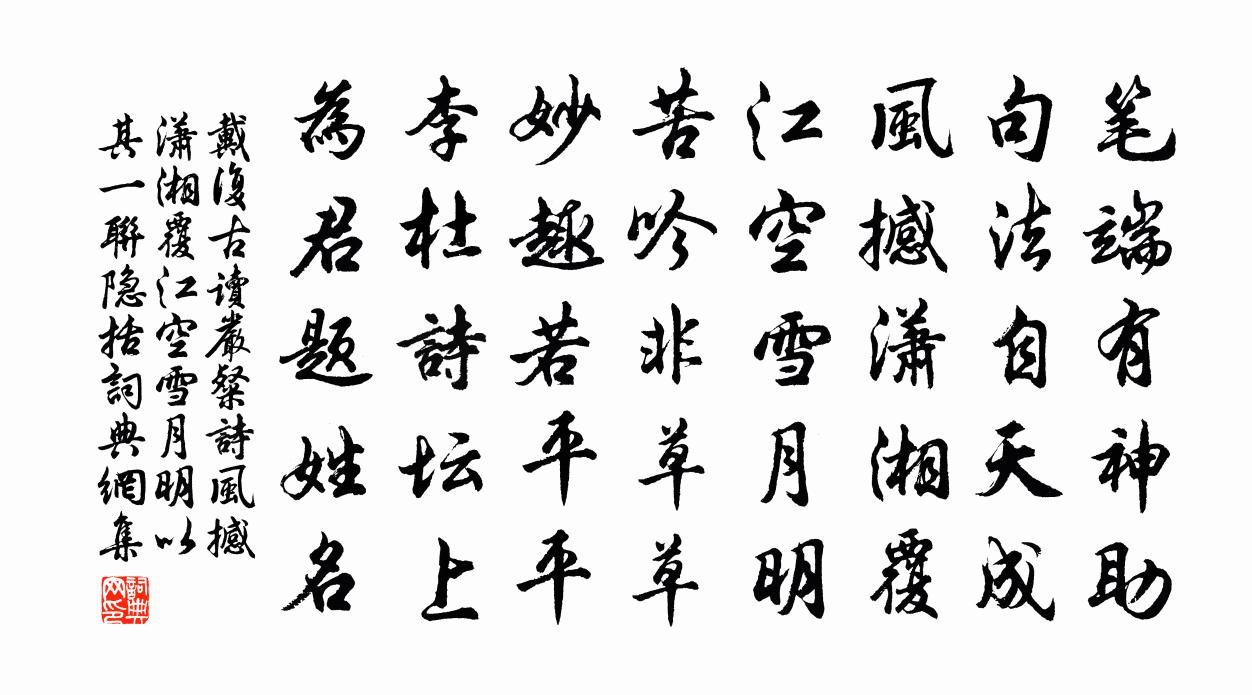 笔端有神助
句法自天成
風撼瀟湘覆
江空雪月明
苦吟非草草
妙趣若平平
李杜詩坛上
為君題姓名
戴復古讀嚴粲詩風撼
瀟湘覆江空雪月明以
其一聯隐括詞典網集
詞典网印